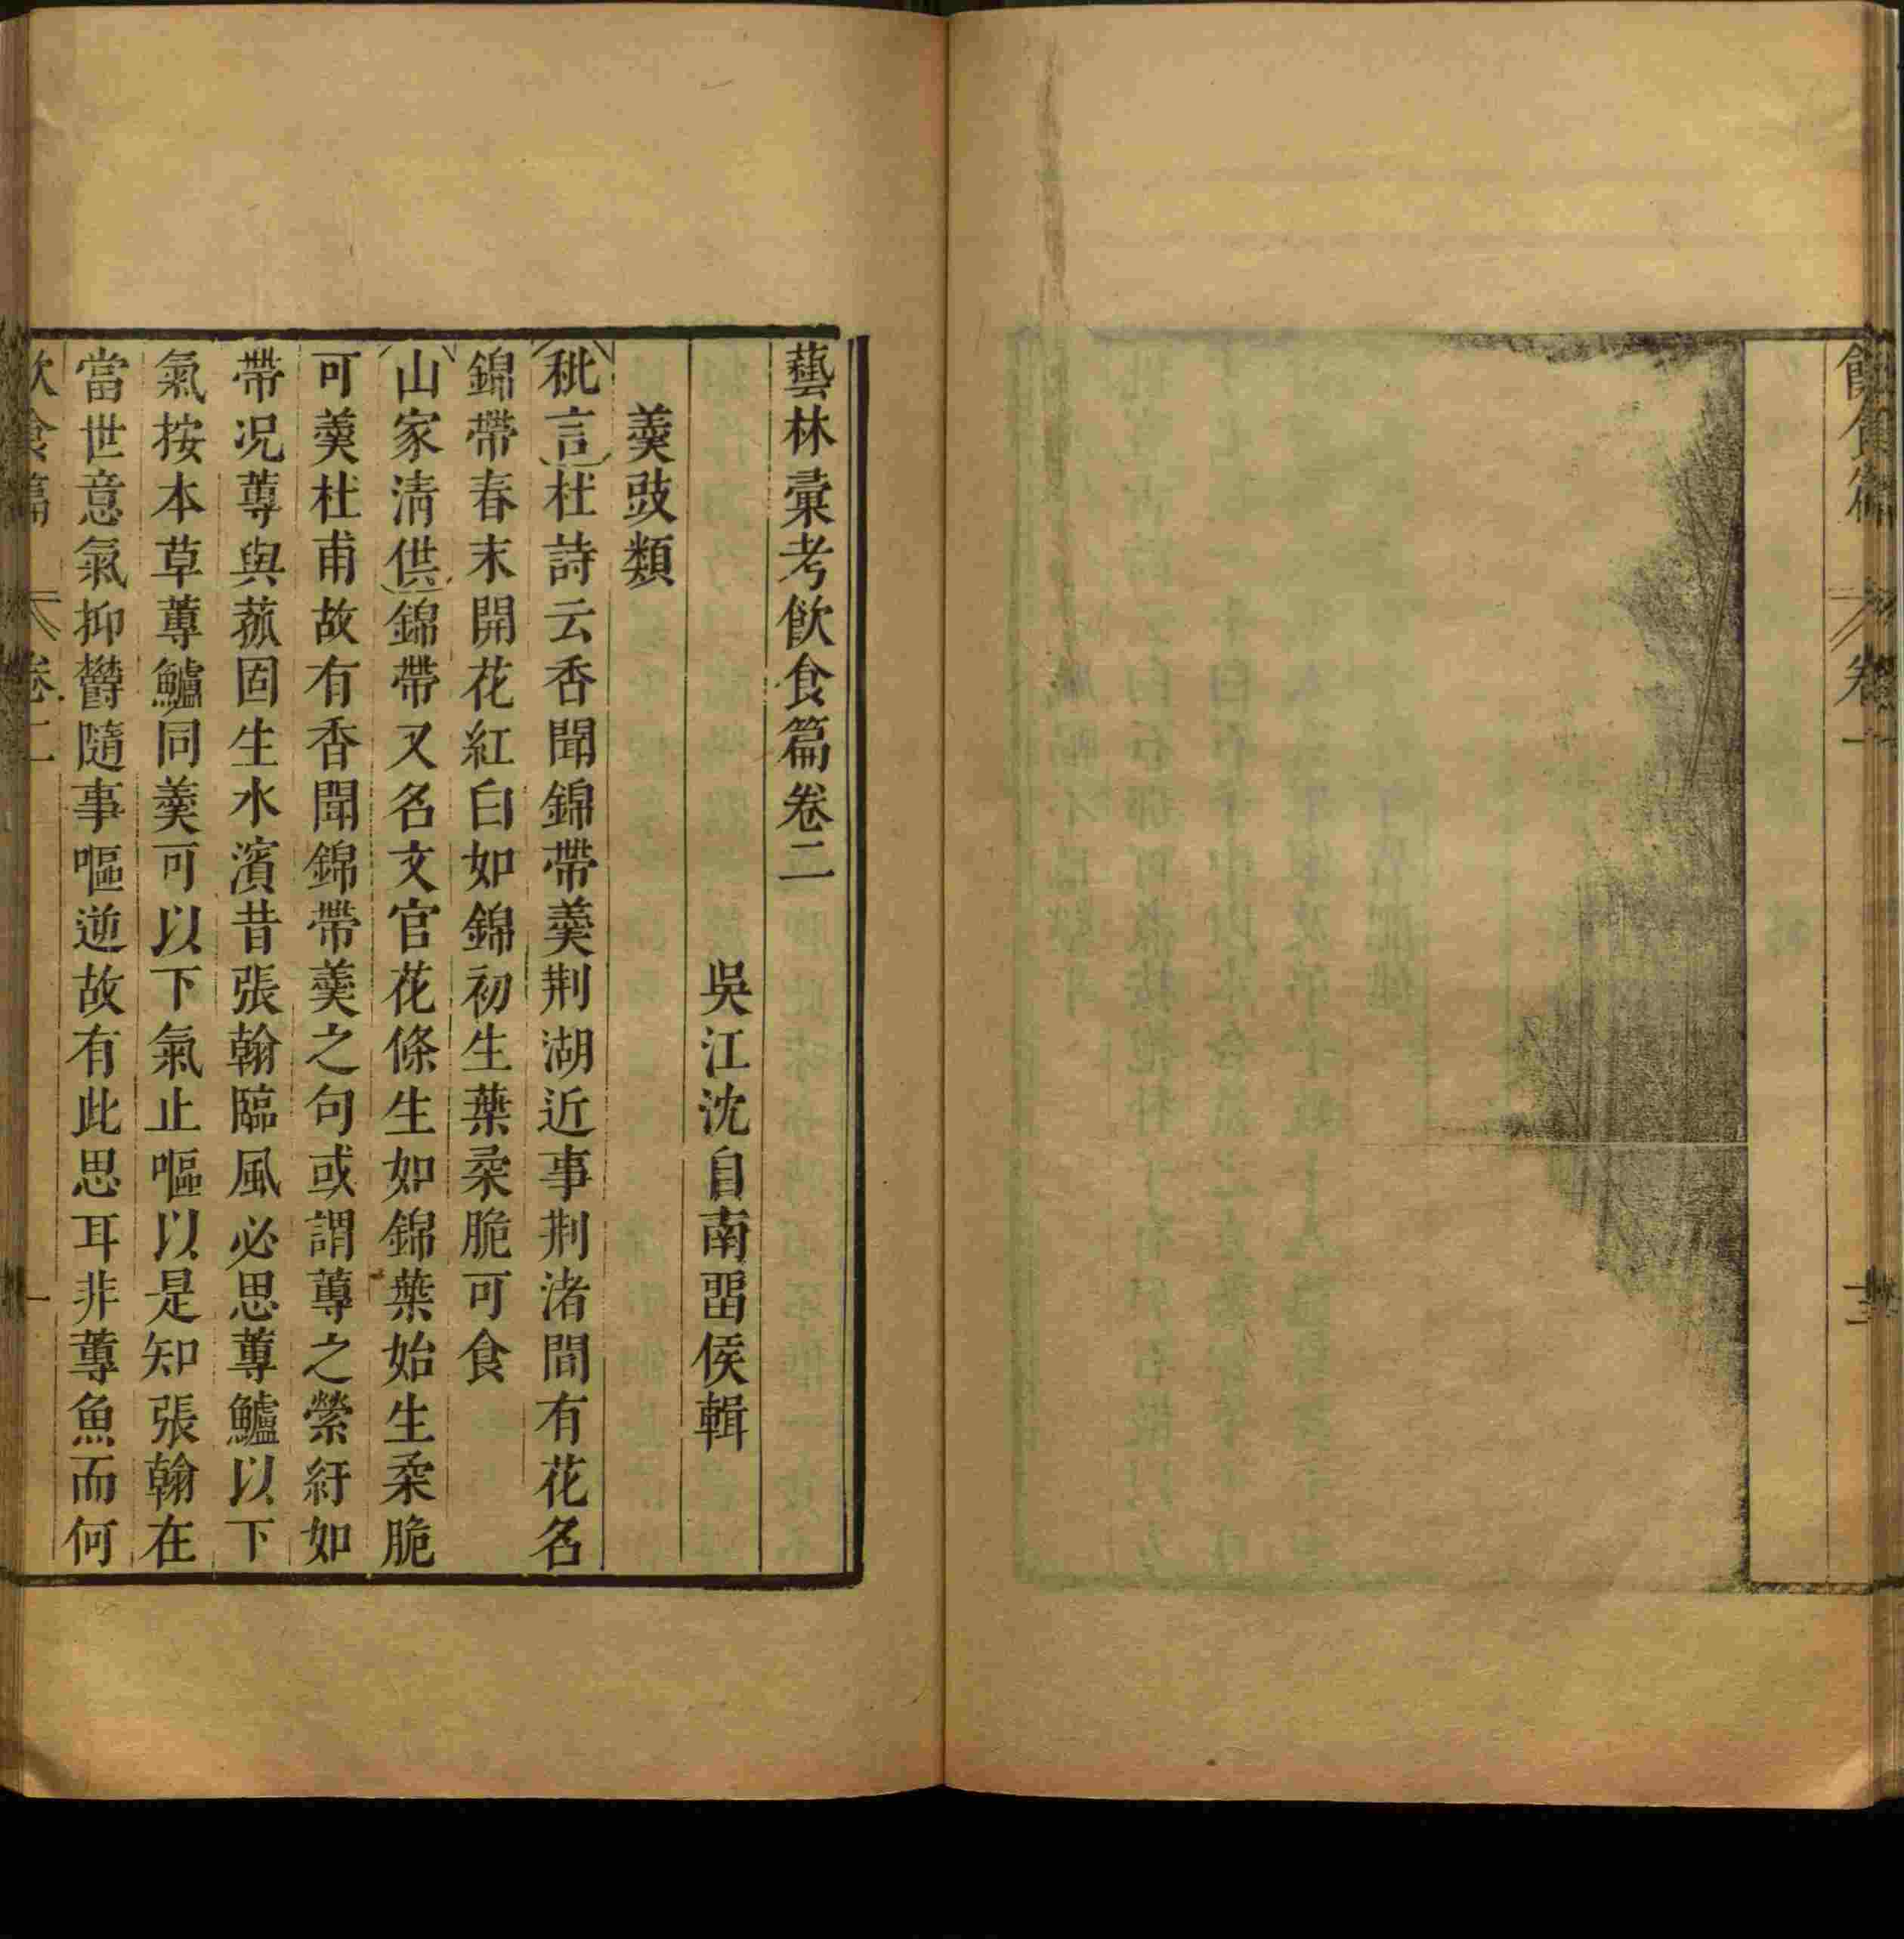 飲食篇 卷一 十三
藝林彙考飲食篇卷二
吳江沈自南畱侯輯
羹豉類
秕言杜詩云香聞錦帶羹荆湖近事荆渚間有花名
錦帶春末開花紅白如錦初生葉柔脆可食
山家清供錦帶又名文官花條生如錦葉始生柔脆
可羹杜甫故有香聞錦帶羹之句或謂蓴之縈紆如
帶况蓴與菰固生水濱昔張翰臨風必思蓴鱸以下
氣按本草蓴鱸同羹可以下氣止嘔以是知張翰在
當世意氣抑鬱隨事嘔逆故有此思耳非蓴魚而何
飲食篇 卷二 一